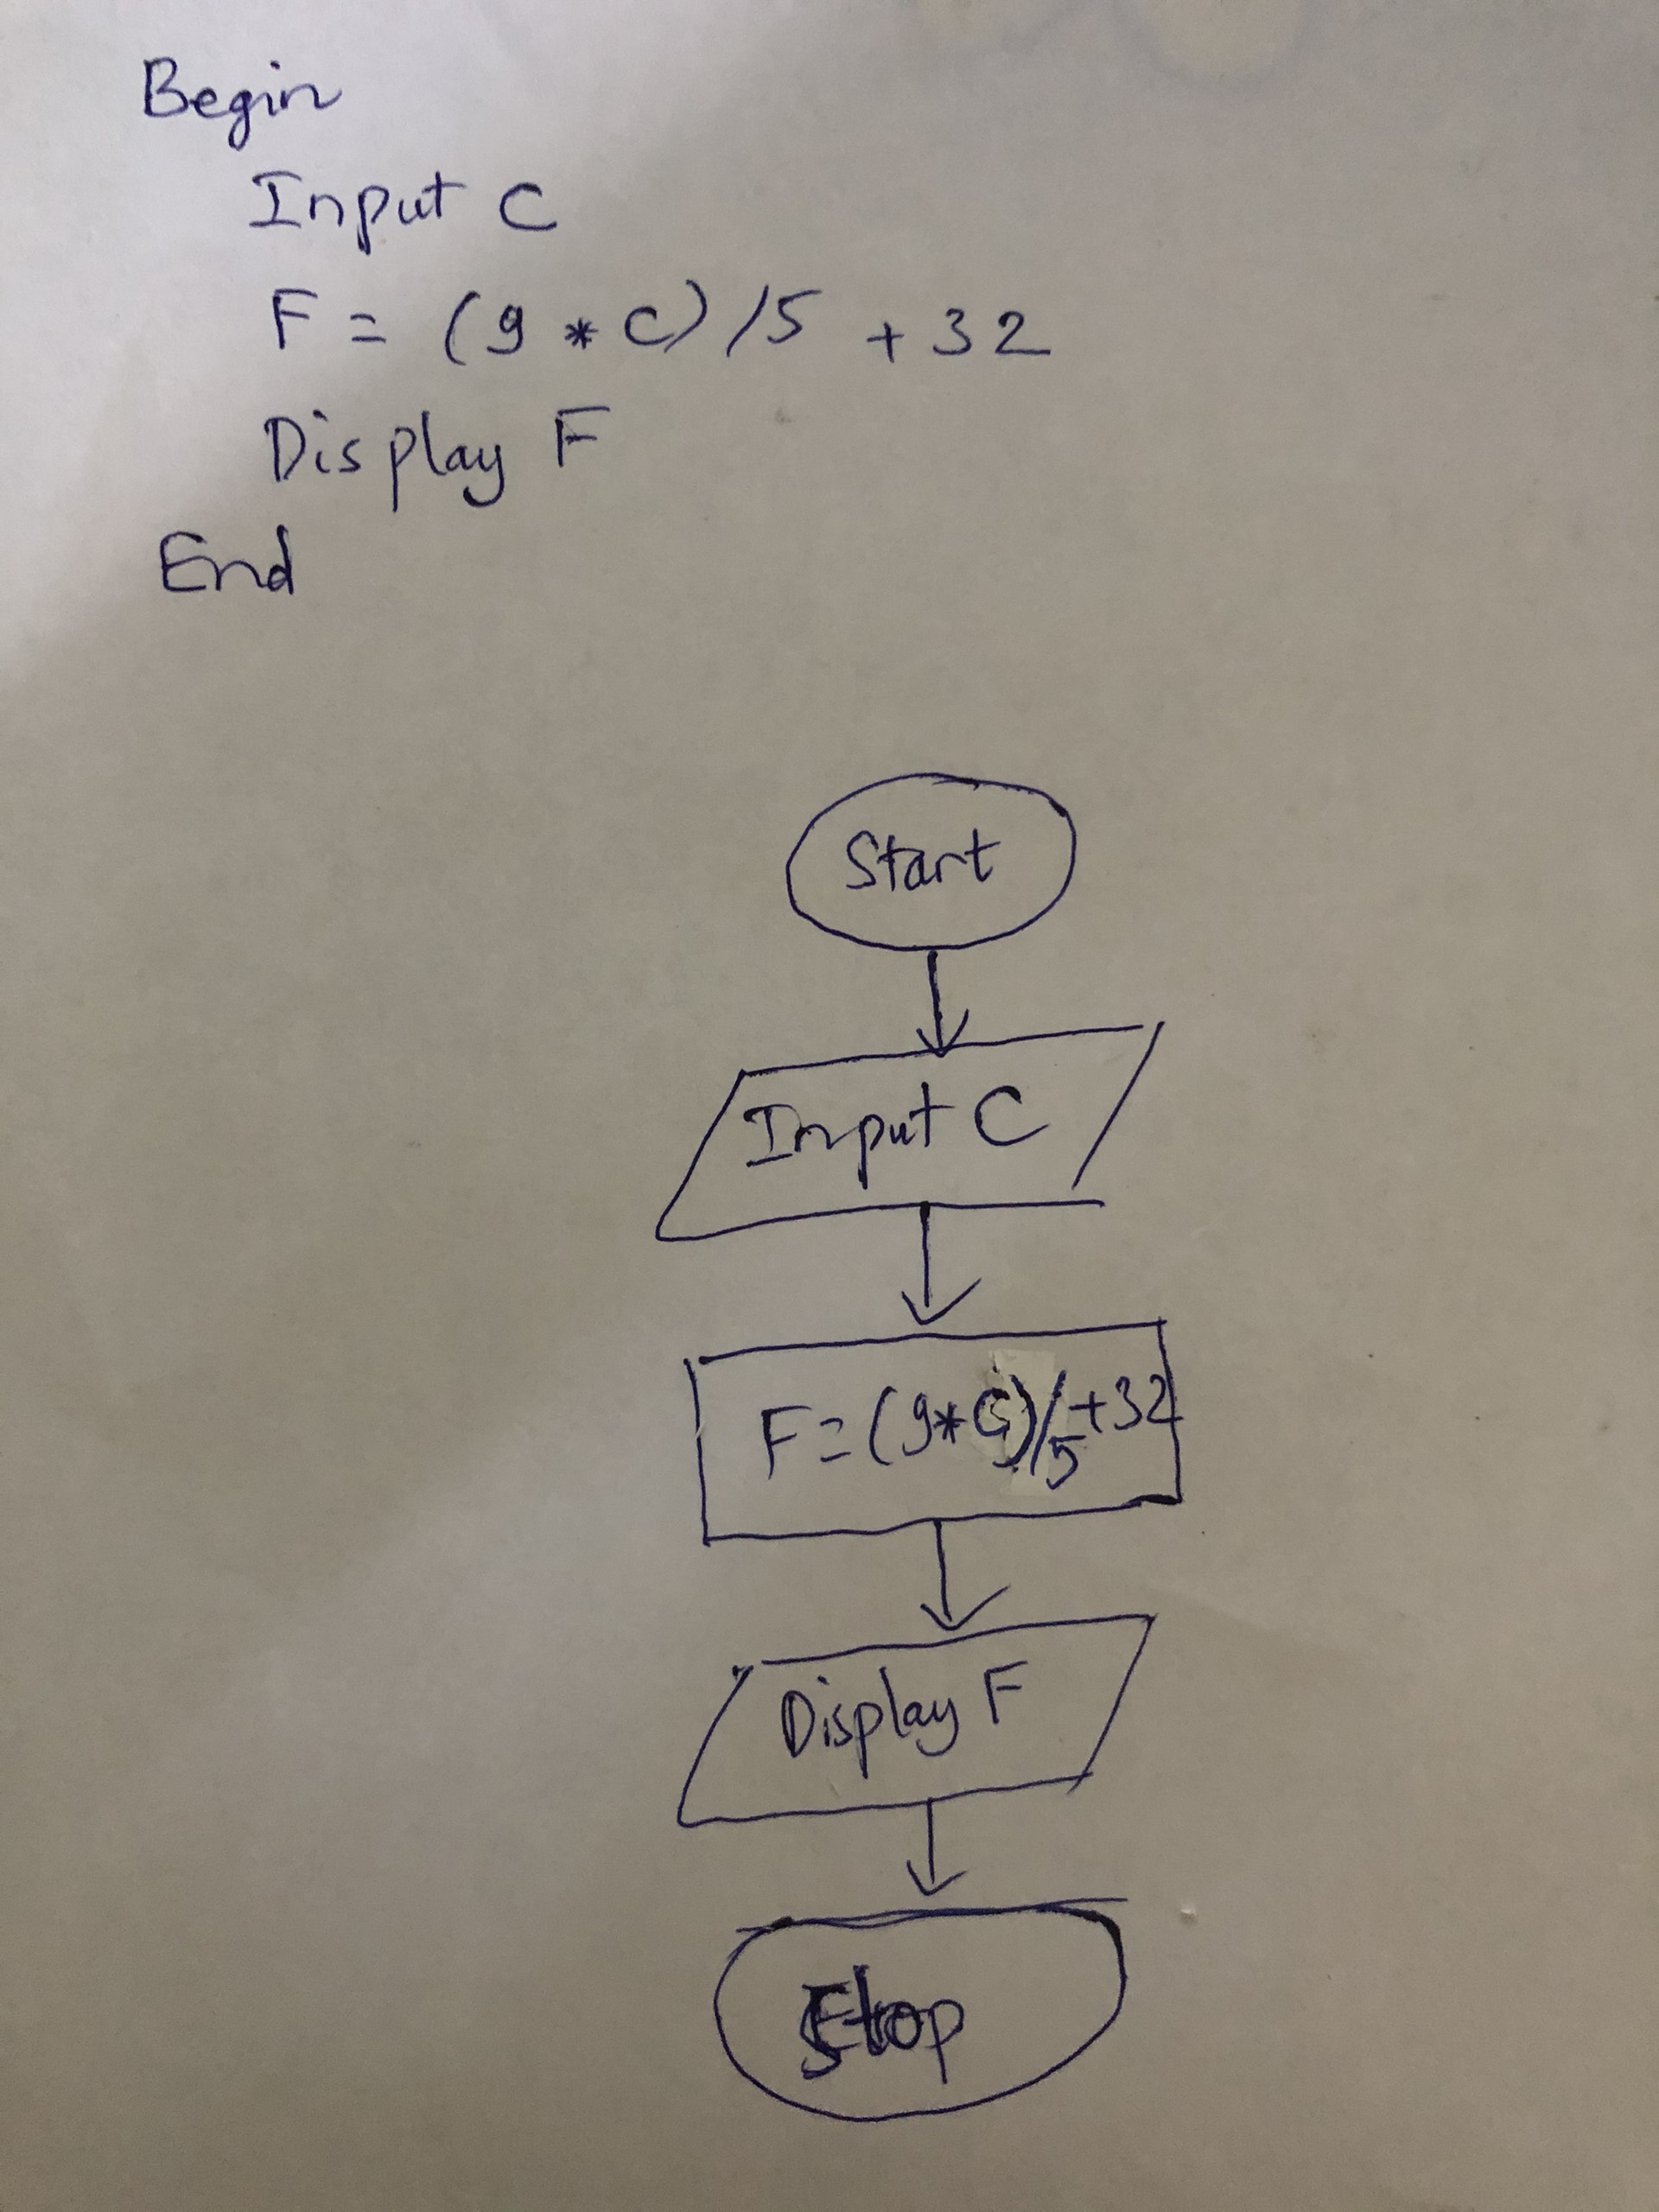 Begin
Input C
F = (9 * C) /5 + 32
Display F
End
Start
Input C
F = (9*C)/5 +32
Display F
Stop